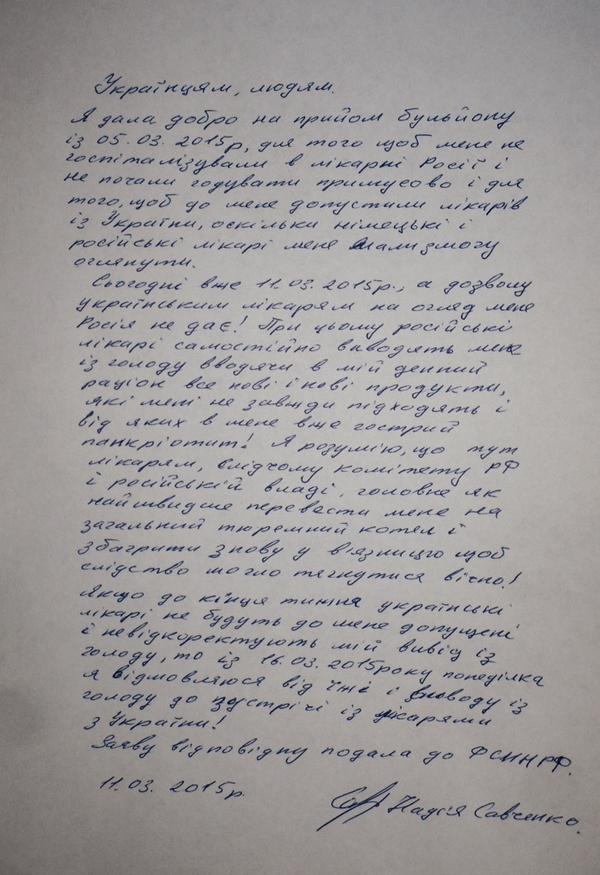 Українцям, людям.
Я дала добро на прийом бульйону
із 05.03.2015р, для того щоб мене не
госпіталізували в лікарні Росії і
не почали годувати примусово і для
того, щоб до мене допустили лікарів
із України, оскільки німецькі і
російські лікарі мене мали змогу
оглянути.
Сьогодні вже 11.03.2015р., а дозволу
українським лікарям на огляд мене
Росія не дає! При цьому російські
лікарі самостійно виводять мене
із голоду вводячи в мій денний
раціон все нові і нові продукти,
які мені не завжди підходять і
від яких в мене вже гострий
панкріотит! Я розумію, що тут
лікарям, слідчому комітету РФ
і російській владі, головне як
найшвидше перевести мене на
загальний тюремний котел і
збагрити знову у в'язницю щоб
слідство могло тягнутися вічно!
Якщо до кінця тижня українські
лікарі не будуть до мене допущені
і невідкоректують мій вивід із
голоду, то із 16.03.2015року понеділка
я відмовляюся від їжі і виводу із
голоду до зустрічі із лікарями
з України!
Заяву відповідну подала до ФСИН РФ.
11.03. 2015р.
Надія Савченко.